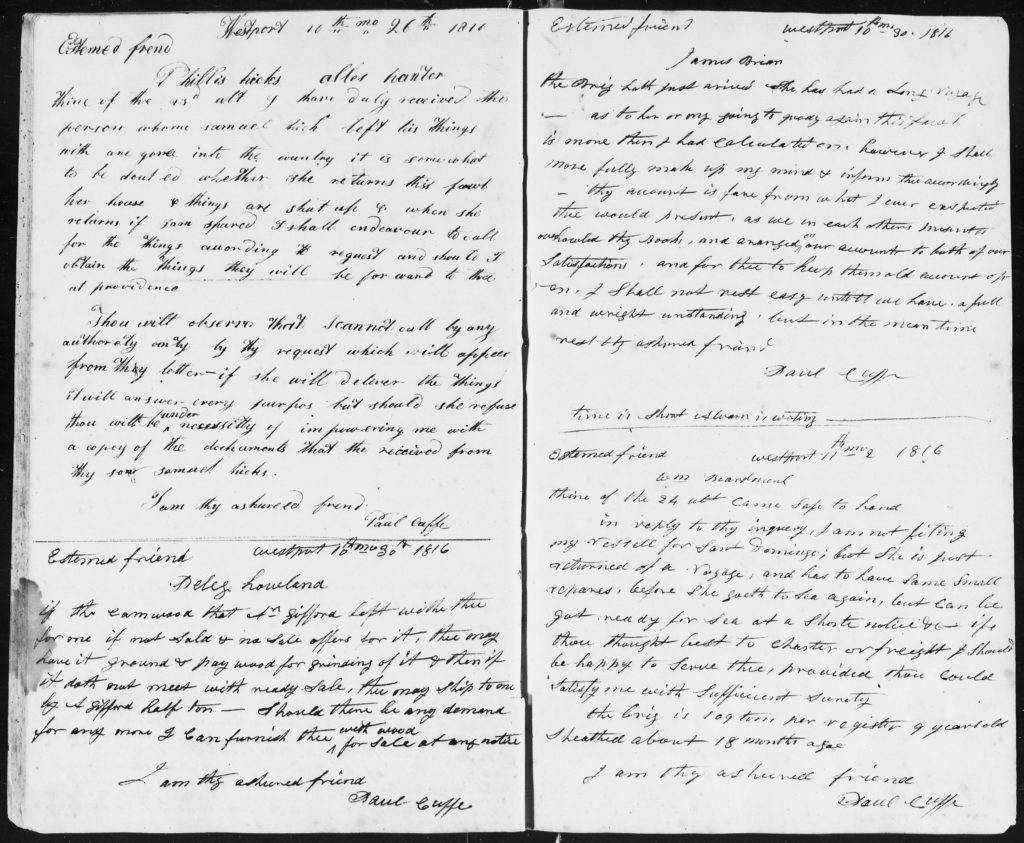 Westport 10th mo 26th 1816
Estemed frend
Phillis hicks alles hanter
thine of the 23d ult I have duly received the
person whome samuel hick left his things
with are gone into the country it is somewhat
to be douted whether she returns this fawl
her house & things are shut up & when she
returns if I am spared I shall endeavour to call
for the things according to request and should I
obtain the things they will be for ward to thee
at providence
Thou wilt observe that I cannot call by any
authoraty only by thy request which will appeer
from thy letter – if she will deliver the things
it will answer every purpos but should she refuse
thou wilt be under necessitty of impowering me with
a copey of the dochaments that the received from
thy son samuel hicks.
I am thy ashured frend
Paul Cuffe
Estemed friend Westport 10th mo 30th 1816
Peleg Howland
if the Camwood that An Gifford left withe thee
for me if not sold & no sale offers for it, thee may
have it ground & pay wood for grinding of it & then if
it doth not meet with ready sale, thee may ship to me
by A Gifford half ton – Should there be any demand
for any more I Can furnish thee with wood for sale at any notice
I am thy ashured friend
Paul Cuffe
Estemed friend Westport 10th mo 30. 1816
James Brian
the Brig hath just arived She has had a Long Voyage
– as to her or my going to again this fawl
is more then I had calculated on. however I Shall
more fully make up my mind & inform thee accordingly
– thy account is fare from what I ever exspected
thee would present, as we in each others
overhawled thy Books, and aranged our accounts to both of our
Satisfactions. and for thee to keep them old account op
en. I Shall not rest easy untill we have a full
and wright unstanding. but in the mean time
rest thy ashured friend
Paul Cuffe
time is Short
Estemed friend Westport 11th mo 2 1816
Wm Boardment
thine of the 24 ult Came Safe to hand
in reply to thy inquery, I am not fiting
my vessell for Sant Domingo; but She is just
returned of a Voyage, and has to have Same Small
repares, before She goeth to Sea again, but Can be
got ready for Sea at a Shorte notice &c – if
thou thought best to Charter or freight I Should
be happy to Serve thee, provided thou Could
Satisfy me with Sufficient Surety
the brig is 109 tons per register 9 years old
Sheathed about 18 months agoe
I am thy ashured friend
Paul Cuffe